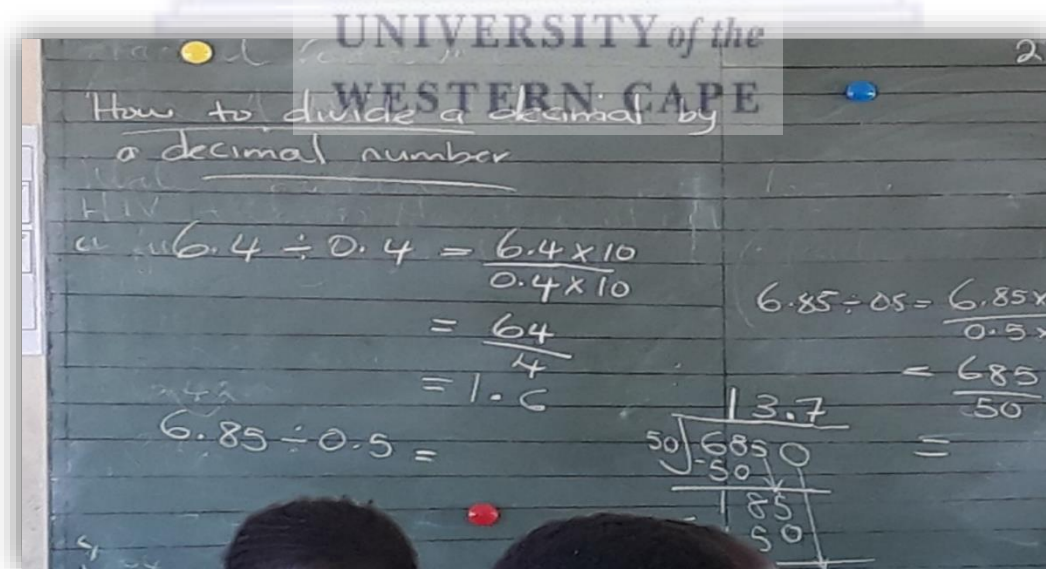 UNIVERSITY of the
WESTERN CAPE
2
How to divide a decimal by
a decimal number
HIV
6.4 ÷ 0.4 = 6.4 × 10
0.4 × 10
= 64
4
= 1.6
6.85 ÷ 0.5 =
13.7
50 6850
-50
185
50
6.85 ÷ 05 = 6.85 ×
0.5 ×
= 685
50
=